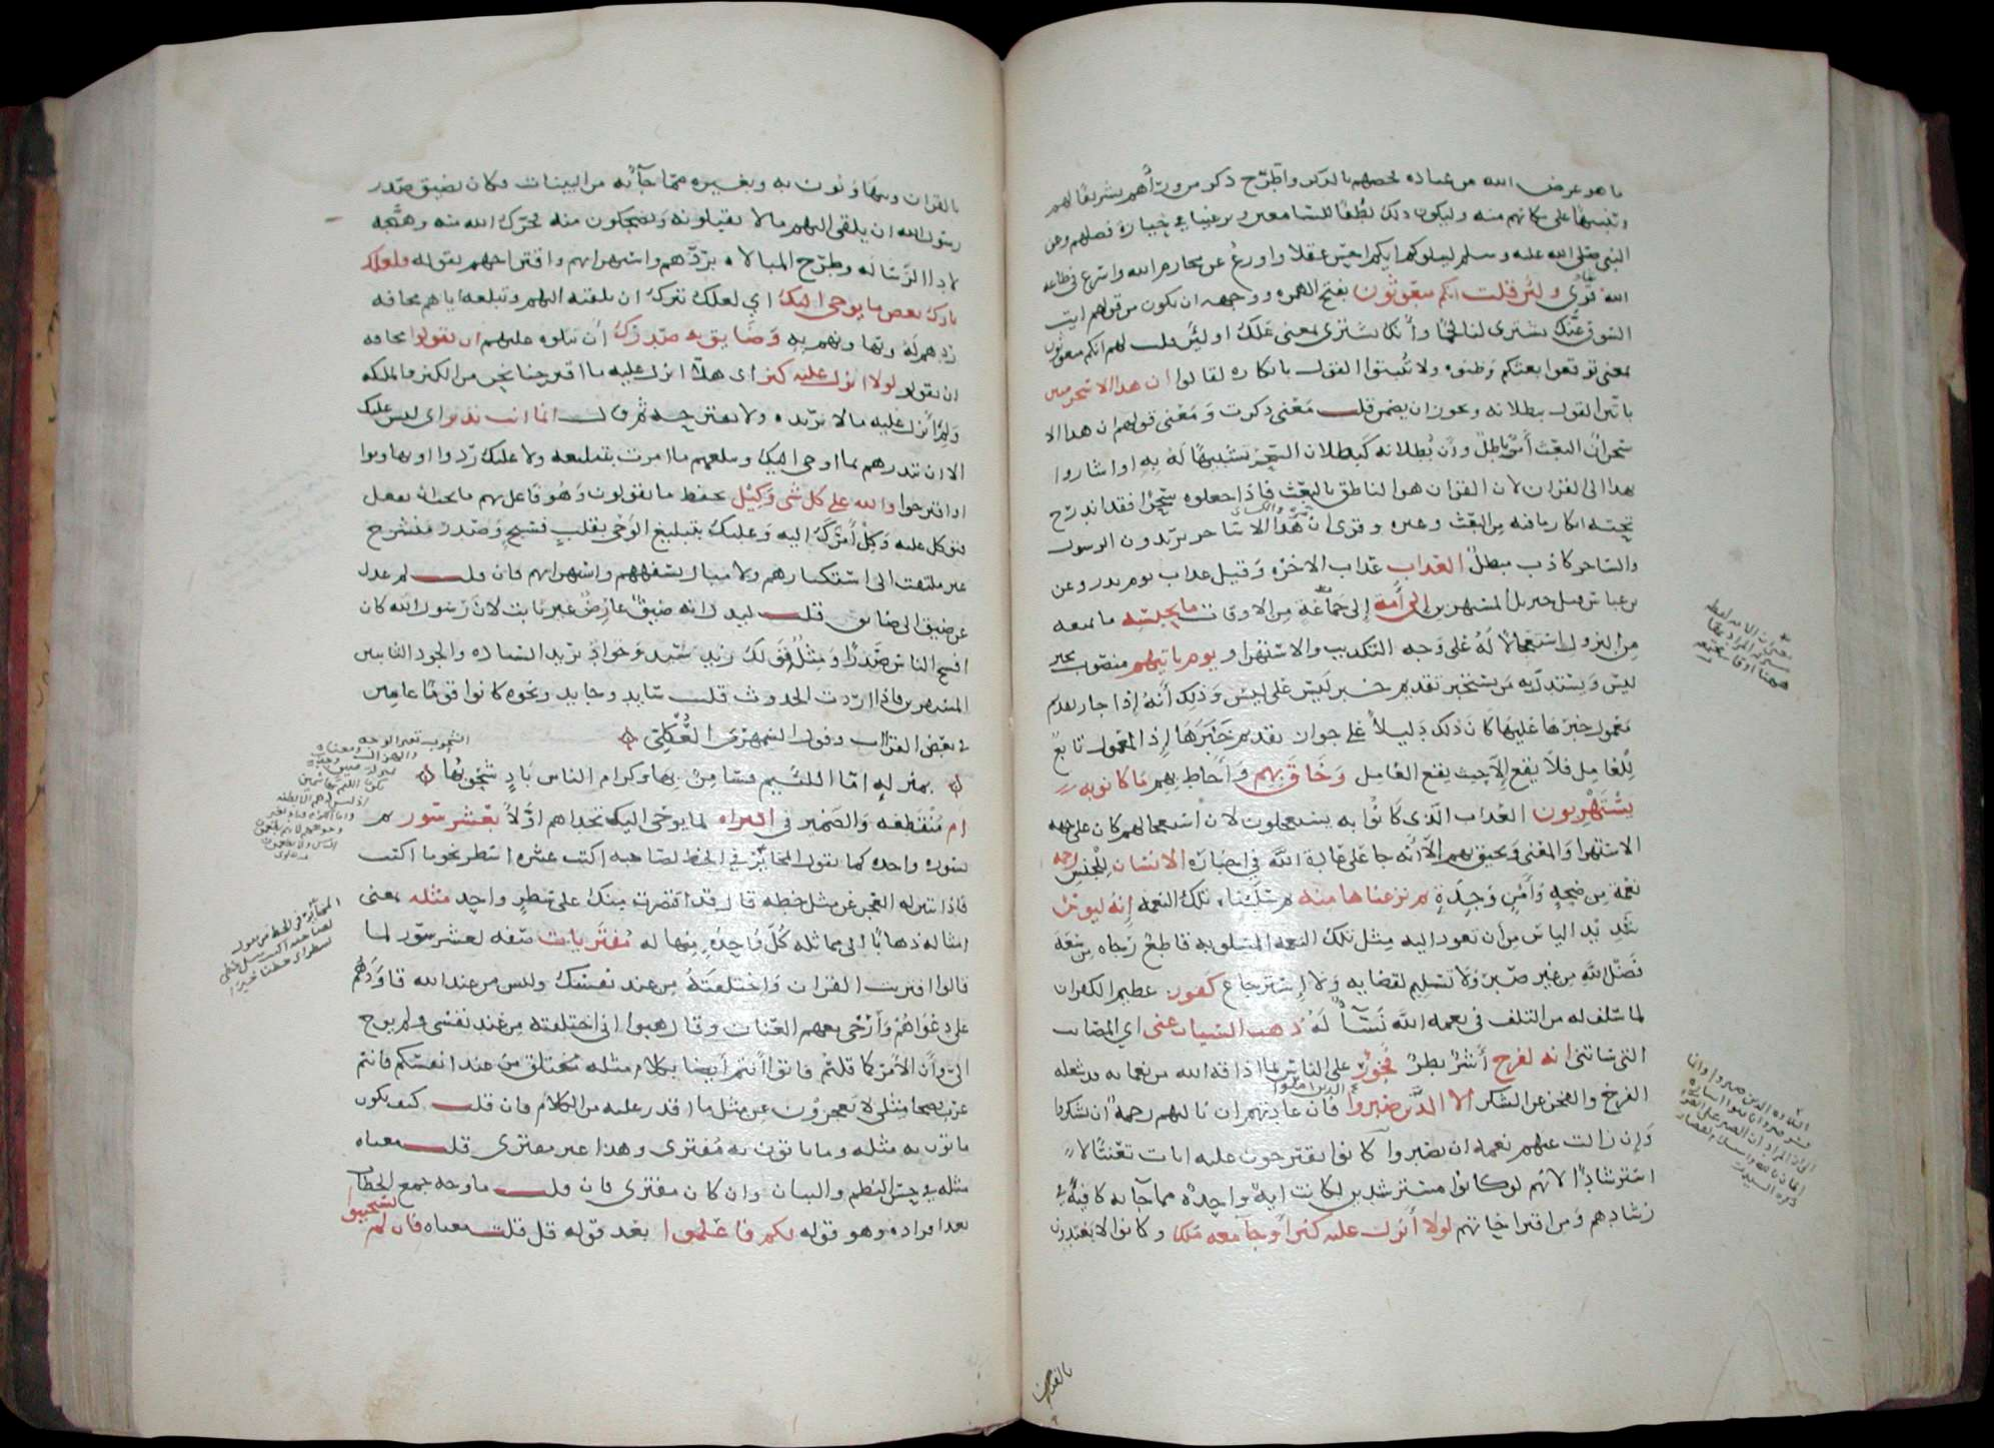 ما هو غرض الله من عباده فخصهم بالذكر واطرح ذكر من ورآهم تشريفا لهم
وتنبيها على مكانهم منه وليكون ذلك لطفا للسامعين وترغيبا في حيازة فضلهم وعن
النبي صلى الله عليه وسلم ليبلوكم ايكم احسن عقلا واورع عن محارم الله واسرع في طاعة
الله قرى ولئن قلت انكم مبعوثون بفتح الهمزه ووجهه ان يكون من قولهم ايت
السوق عنك تشترى لنا لحما وأنك تشترى بمعنى علك اي ولئن قلت لهم انكم مبعوثون
بمعنى توقعوا بعثكم وظنوه ولا تبتوا القول بانكاره لقالوا ان هذا الا سحر مبين
باتين القول ببطلانه ويجوز ان يضمن قلت معنى ذكرت ومعنى قولهم ان هذا الا
سحر ان البعث امر باطل وأن بطلانه كبطلان السحر تشبيها له به او اشاروا
بهذا الى القرآن لان القرآن هو الناطق بالبعث فاذا جعلوه سحرا فقد اندرج
تحته انكار ما فيه من البعث وغيره وقرى ان هذا الا ساحر يريدون الرسول
والساحر كاذب مبطل العذاب عذاب الاخرة وقيل عذاب يوم بدر وعن
بن عباس قتل جبريل المستهزين الى أمة إلى جماعة من الاوقات ما يحبسه ما يمنعه
من النزول استعجالا له على وجه التكذيب والاستهزا ويوم ياتيهم منصوب بخبر
ليس ويستدل به من يستجيز تقديم خبر ليس على ليس وذلك أنه إذا جاز تقديم
معمول خبرها عليها كان ذلك دليلا على جواز تقديم خبرها إذ المعمول تابع
للعامل فلا يقع إلا حيث يقع العامل وحاق بهم وأحاط بهم ما كانوا به
يستهزيون العذاب الذي كانوا به يستعجلون لان استعجالهم كان على جهة
الاستهزا والمعنى ويحيق بهم الا أنه جا على عادة الله في اخباره الانسان للجنس رحمة
نعمة من صحة وأمن وجدة ثم نزعناها منه ثم سلبناه تلك النعمة إنه ليوس
شديد الياس من أن تعود اليه مثل تلك النعمه المسلوبه قاطع رجاه من سعة
فضل الله من غير صبر ولا تسليم لقضايه ولا استرجاع كفور عظيم الكفران
لما سلف له من التقلب في نعمة الله نسآ له ذهب السيات عنى اي المصايب
التى ساتنى انه لفرح أشر بطر فخور على الناس بما اذاقه الله من نعمايه قد شغله
الفرح والفخر عن الشكر الا الذين صبروا فان عادتهم ان نالتهم رحمة ان يشكروا
وإن زالت عنهم نعمة ان يصبروا كانوا يقترحون عليه ايات تعنتا لا
استرشادا لانهم لو كانوا مسترشدين لكانت اية واحدة مما جا به كافية في
رشادهم ومن اقتراحاتهم لولا أنزل عليه كنز أو جا معه ملك وكانوا لا يعتدون
بالقران
بالقران ويتهاونون به وبغيره مما جآ به من البينات فكان يضيق صدر
رسول الله ان يلقى اليهم ما لا يقبلونه ويضحكون منه فحرك الله منه وهيجه
لاداء الرسالة وطرح المبالاه بردهم واستهزايهم واقتراحهم بقوله فلعلك
تارك بعض ما يوحى اليك اي لعلك تترك ان تلقيه اليهم وتبلغه اياهم مخافة
ردهم له وتهاونهم به وضايق به صدرك أن تتلوه عليهم ان يقولوا مخافة
ان يقولوا لولا انزل عليه كنز اى هلا انزل عليه ما اقترحنا نحن من الكنز والملائكة
ولم أنزل عليه ما لا نريده ولا نقترحه ثم قال انما انت نذير اى ليس عليك
الا ان تنذرهم بما اوحى اليك وتبلغهم ما امرت بتبليغه ولا عليك ردوا او تهاونوا
او اقترحوا والله على كل شى وكيل يحفظ ما يقولون وهو فاعل بهم ما يجب ان يفعل
فتوكل عليه وكل أمرك اليه وعليك بتبليغ الوحى بقلب فسيح وصدر منشرح
غير ملتفت الى استكبارهم ولا مبال بسفههم واستهزايهم فان قلت لم عدل
عن ضيق الى ضايق قلت ليدل انه ضيق عارض غير ثابت لان رسول الله كان
افسح الناس صدرا ومثله قولك زيد سيد وجواد تريد السيادة والجود الثابتين
المستقرين فاذا اردت الحدوث قلت سايد وجايد ونحوه كانوا قوما عامين
في بعض القراات وقول السمهرى العكلي
بمنزله امّا اللئيم فسامن بها وكرام الناس باد شحوبها
ام منقطعه والضمير في افتراه لما يوحى اليك تحداهم اوّلا بعشر سور ثم
بسورة واحده كما يقول المخاير في الخط لصاحبه اكتب عشرة اسطر نحو ما اكتب
فاذا تبين له العجز عن مثل خطه قال قد اقتصرت منك على سطر واحد مثله بمعنى
امثاله ذهابا الى مماثلة كل واحدة منها له مفتريات صفه لعشر سور لما
قالوا افتريت القران واختلقته من عند نفسك وليس من عند الله قاودهم
على دعواهم وأرخى معهم العنان وقال هبوا انى اختلقته من عند نفسى ولم يوح
الىّ وأن الأمر كما قلتم فاتوا أنتم أيضا بكلام مثله مختلق من عند انفسكم فانتم
عرب فصحا مثلي لا تعجزون عن مثل ما اقدر عليه من الكلام فان قلت كيف يكون
ما ياتون به مثله وما ياتون به مفترى وهذا غير مفترى قلت معناه
مثله في حسن النظم والبيان وان كان مفترى فان قلت ما وجه جمع الخطاب
بعد افراده وهو قوله لكم فاعلموا بعد قوله قل قلت معناه فان لم يستجيبوا